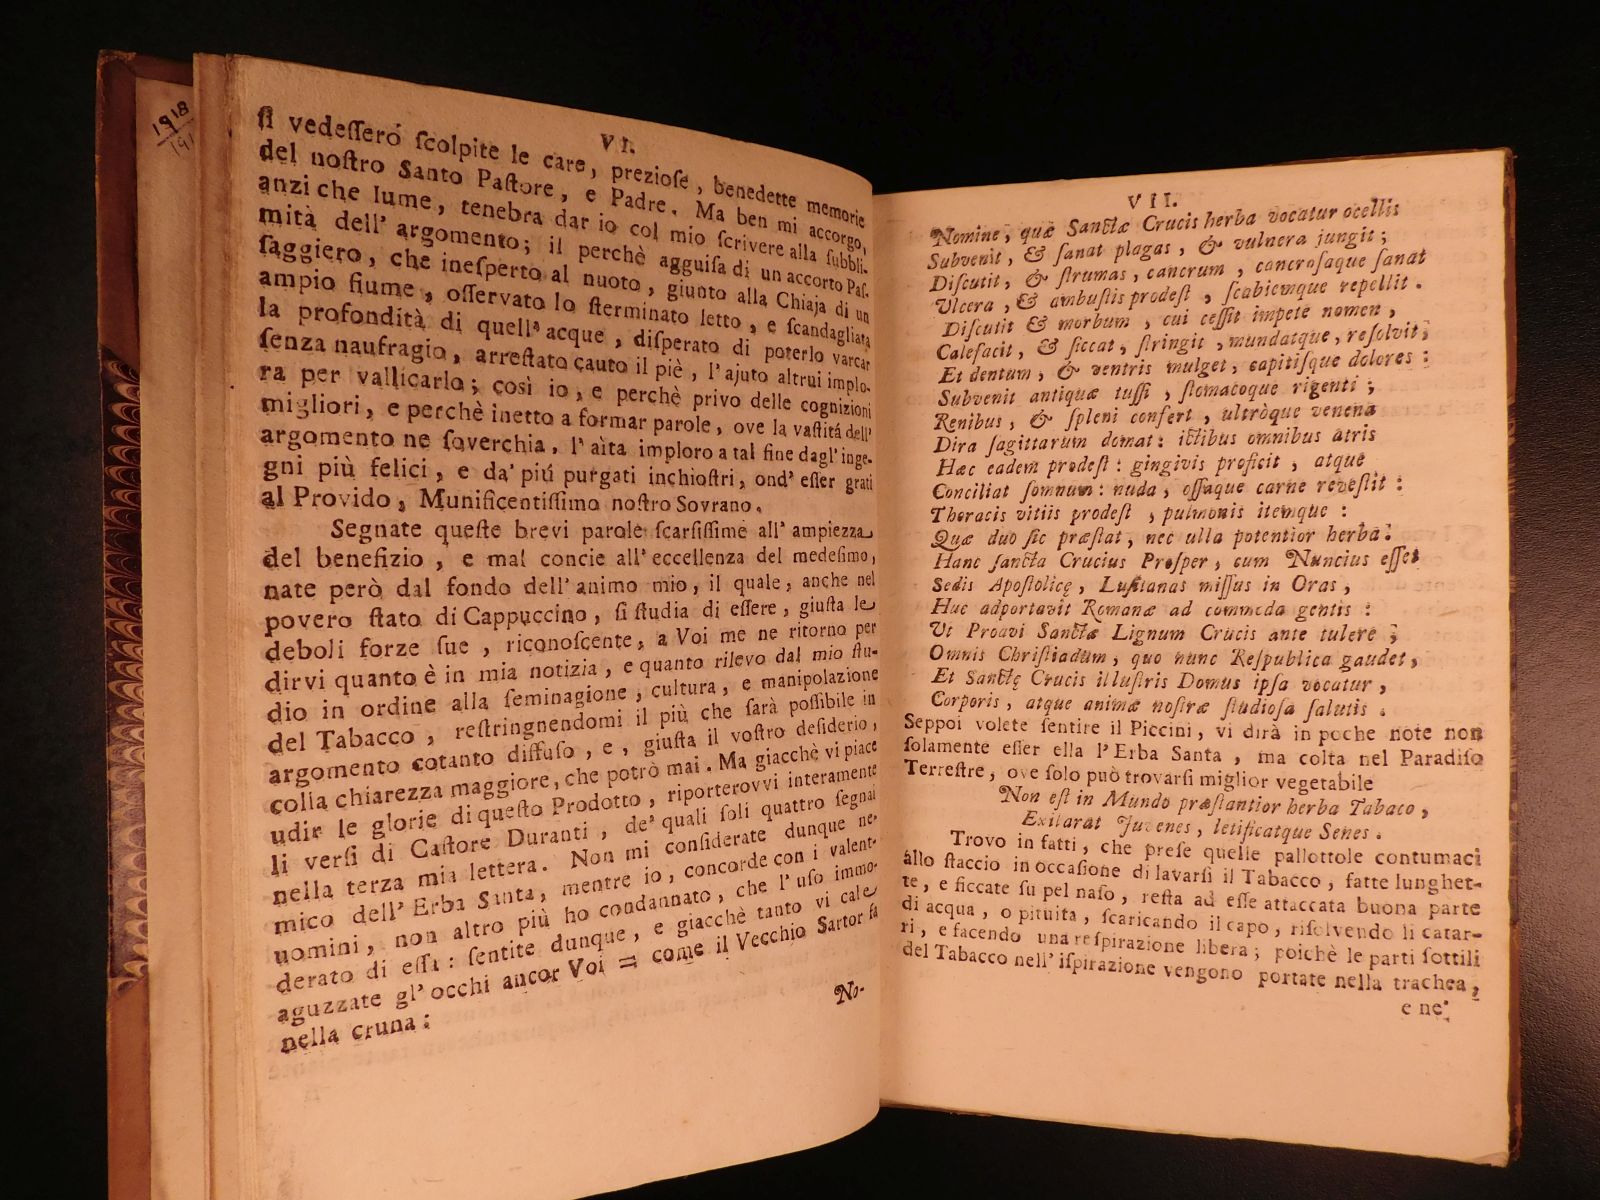 1918
191
VI.
ſi vedeſſeró ſcolpite le care, prezioſe, benedette memorie
del noſtro Santo Paſtore, e Padre. Ma ben mi accorgo,
anzi che lume, tenebra dar io col mio ſcrivere alla ſubbli-
mità dell' argomento; il perchè agguiſa di un accorto Paſ-
ſaggiero, che ineſperto al nuoto, giunto alla Chiaja di un
ampio fiume, oſſervato lo ſterminato letto, e ſcandagliata
la profondità di quell' acque, diſperato di poterlo varcar
ſenza naufragio, arreſtato cauto il piè, l'ajuto altrui implo-
ra per vallicarlo; così io, e perchè privo delle cognizioni
migliori, e perchè inetto a formar parole, ove la vaſtitá dell'
argomento ne ſoverchia, l'aita imploro a tal fine dagl'inge-
gni più felici, e da' piú purgati inchioſtri, ond' eſſer grati
al Provido, Munificentiſſimo noſtro Sovrano.
Segnate queſte brevi parole ſcarſiſſime all' ampiezza
del benefizio, e mal concie all' eccellenza del medeſimo,
nate però dal fondo dell' animo mio, il quale, anche nel
povero ſtato di Cappuccino, ſi ſtudia di eſſere, giuſta le
deboli forze ſue, riconoſcente, a Voi me ne ritorno per
dirvi quanto è in mia notizia, e quanto rilevo dal mio ſtu-
dio in ordine alla ſeminagione, cultura, e manipolazione
del Tabacco, reſtringnendomi il più che ſarà poſſibile in
argomento cotanto diffuſo, e, giuſta il voſtro deſiderio,
colla chiarezza maggiore, che potrò mai. Ma giacchè vi piace
udir le glorie di queſto Prodotto, riporterovvi interamente
li verſi di Caſtore Duranti, de' quali ſoli quattro ſegnai
nella terza mia lettera. Non mi conſiderate dunque ne-
mico dell' Erba Santa, mentre io, concorde con i valent-
uomini, non altro più ho condannato, che l' uſo immo-
derato di eſſa: ſentite dunque, e giacchè tanto vi cale
aguzzate gl' occhi ancor Voi = come il Vecchio Sartor fa
nella cruna:
No-
VII.
Nomine, quæ Sanctæ Crucis herba vocatur ocellis
Subvenit, & ſanat plagas, & vulnera jungit;
Diſcutit, & ſtrumas, cancrum, cancroſaque ſanat
Ulcera, & ambuſtis prodeſt, ſcabiemque repellit.
Diſcutit & morbum, cui ceſſit impete nomen,
Calefacit, & ſiccat, ſtringit, mundatque, reſolvit;
Et dentum, & ventris mulget, capitiſque dolores:
Subvenit antiquæ tuſſi, ſtomacoque rigenti;
Renibus, & ſpleni confert, ultròque venena
Dira ſagittarum domat: ictibus omnibus atris
Hæc eadem prodeſt: gingivis proficit, atque
Conciliat ſomnum: nuda, oſſaque carne reveſtit:
Thoracis vitiis prodeſt, pulmonis itemque:
Quæ duo ſic præſtat, nec ulla potentior herba:
Hanc ſancta Crucius Proſper, cum Nuncius eſſet
Sedis Apoſtolicę, Luſitanas miſſus in Oras,
Huc adportavit Romanæ ad commoda gentis:
Ut Proavi Sanctæ Lignum Crucis ante tulere;
Omnis Chriſtiadum, quo nunc Reſpublica gaudet,
Et Sanctę Crucis illuſtris Domus ipſa vocatur,
Corporis, atque animæ noſtræ ſtudioſa ſalutis.
Seppoi volete ſentire il Piccini, vi dirà in poche note non
ſolamente eſſer ella l'Erba Santa, ma colta nel Paradiſo
Terreſtre, ove ſolo può trovarſi miglior vegetabile
Non eſt in Mundo præſtantior herba Tabaco,
Exilarat Juvenes, letificatque Senes.
Trovo in fatti, che preſe quelle pallottole contumaci
allo ſtaccio in occaſione di lavarſi il Tabacco, fatte lunghet-
te, e ficcate ſu pel naſo, reſta ad eſſe attaccata buona parte
di acqua, o pituita, ſcaricando il capo, riſolvendo li catar-
ri, e facendo una reſpirazione libera; poichè le parti ſottili
del Tabacco nell' iſpirazione vengono portate nella trachea,
e ne'